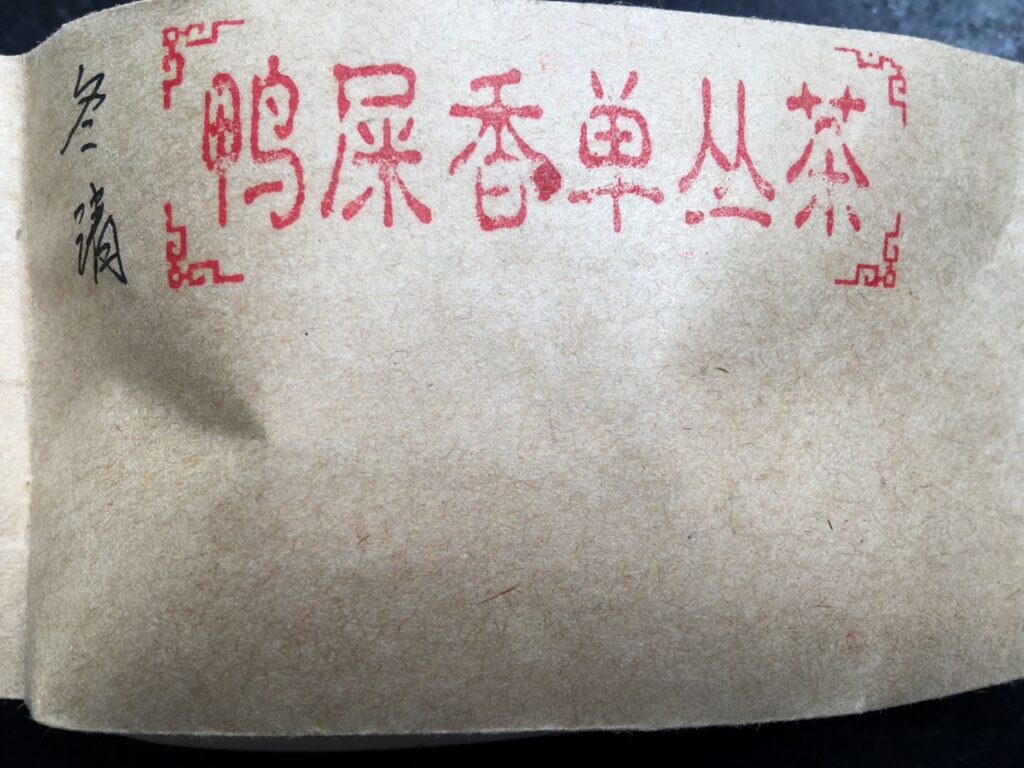 鸭屎香单丛茶
冬清